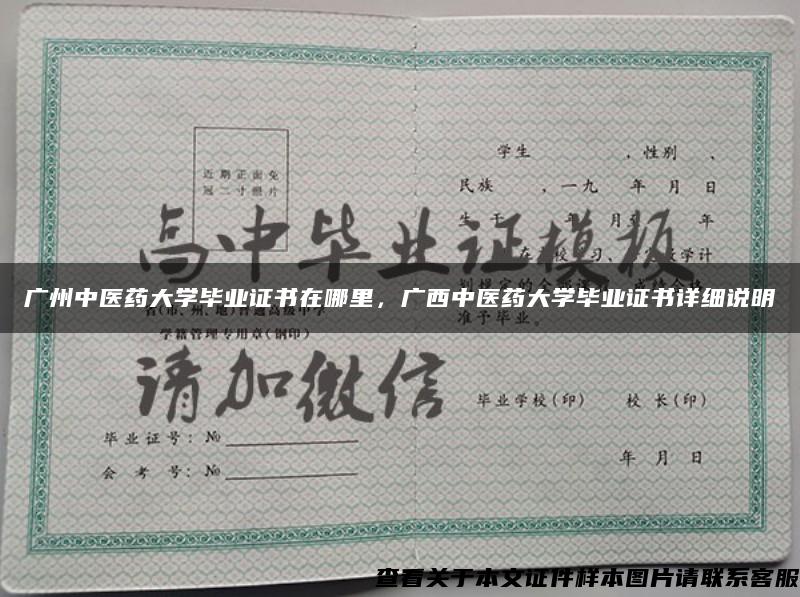 近期正面免
冠二寸照片
学生 ，性别 、
民族 ，一九 年 月 日
生于 年 月至 年
高中毕业证模板
广州中医药大学毕业证书在哪里，广西中医药大学毕业证书详细说明
省(市、州、地)普通高级中学
准予毕业。
学籍管理专用章(钢印)
请加微信
毕业学校(印) 校 长(印)
毕业证号：№
会 考 号：№
年 月 日
查看关于本文证件样本图片请联系客服